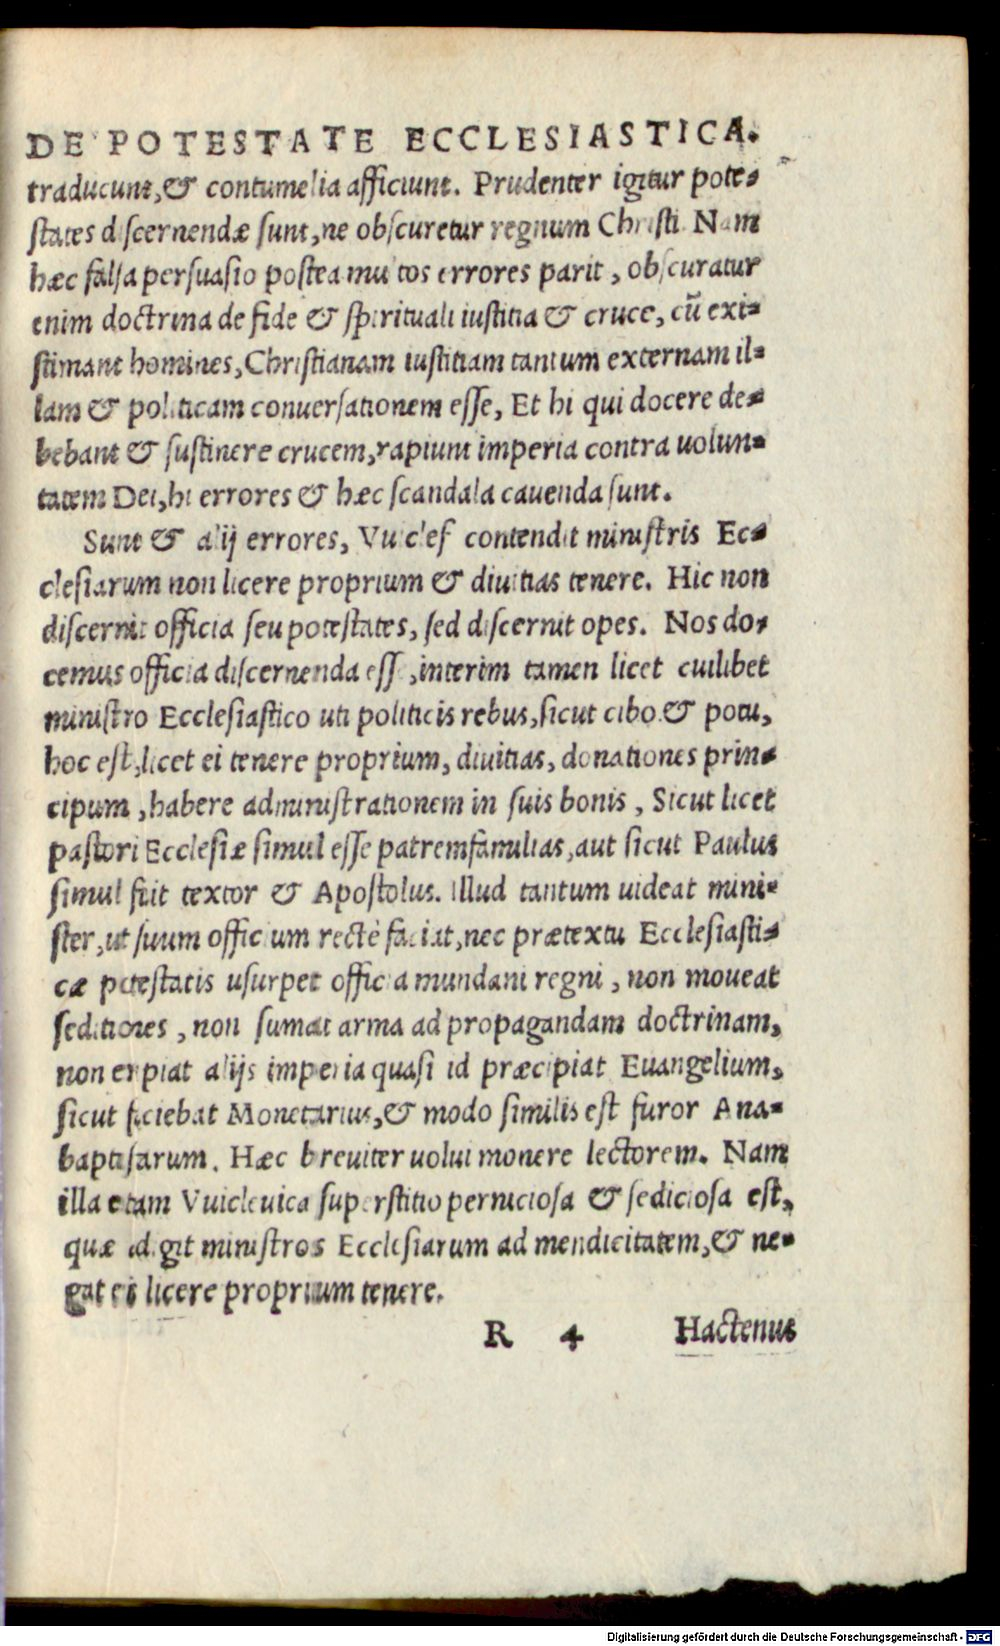 DE POTESTATE ECCLESIASTICA.
traducunt,& contumelia afficiunt. Prudenter igitur pote-
states discernendæ sunt,ne obscuretur regnum Christi. Nam
hæc falsa persuasio postea multos errores parit, obscuratur
enim doctrina de fide & spirituali iustitia & cruce, cū exi-
stimant homines,Christianam iustitiam tantum externam il-
lam & politicam conuersationem esse, Et hi qui docere de-
bebant & sustinere crucem,rapiunt imperia contra uolun-
tatem Dei,hi errores & hæc scandala cauenda sunt.
Sunt & alij errores, Vuiclef contendit ministris Ec-
clesiarum non licere proprium & diuitias tenere. Hic non
discernit officia seu potestates, sed discernit opes. Nos do-
cemus officia discernenda esse,interim tamen licet cuilibet
ministro Ecclesiastico uti politicis rebus,sicut cibo & potu,
hoc est,licet ei tenere proprium, diuitias, donationes prin-
cipum, habere administrationem in suis bonis, Sicut licet
pastori Ecclesiæ simul esse patremfamilias,aut sicut Paulus
simul fuit textor & Apostolus. Illud tantum uideat mini-
ster,ut suum officium rectè faciat,nec prætextu Ecclesiasti-
cæ potestatis usurpet officia mundani regni, non moueat
seditiones, non sumat arma ad propagandam doctrinam,
non eripiat alijs imperia quasi id præcipiat Euangelium,
sicut faciebat Monetarius,& modo similis est furor Ana-
baptistarum. Hæc breuiter uolui monere lectorem. Nam
illa etiam Vuicleuica superstitio perniciosa & sediciosa est,
quæ adigit ministros Ecclesiarum ad mendicitatem,& ne-
gat eis licere proprium tenere.
R 4 Hactenus
Digitalisierung gefördert durch die Deutsche Forschungsgemeinschaft - DFG